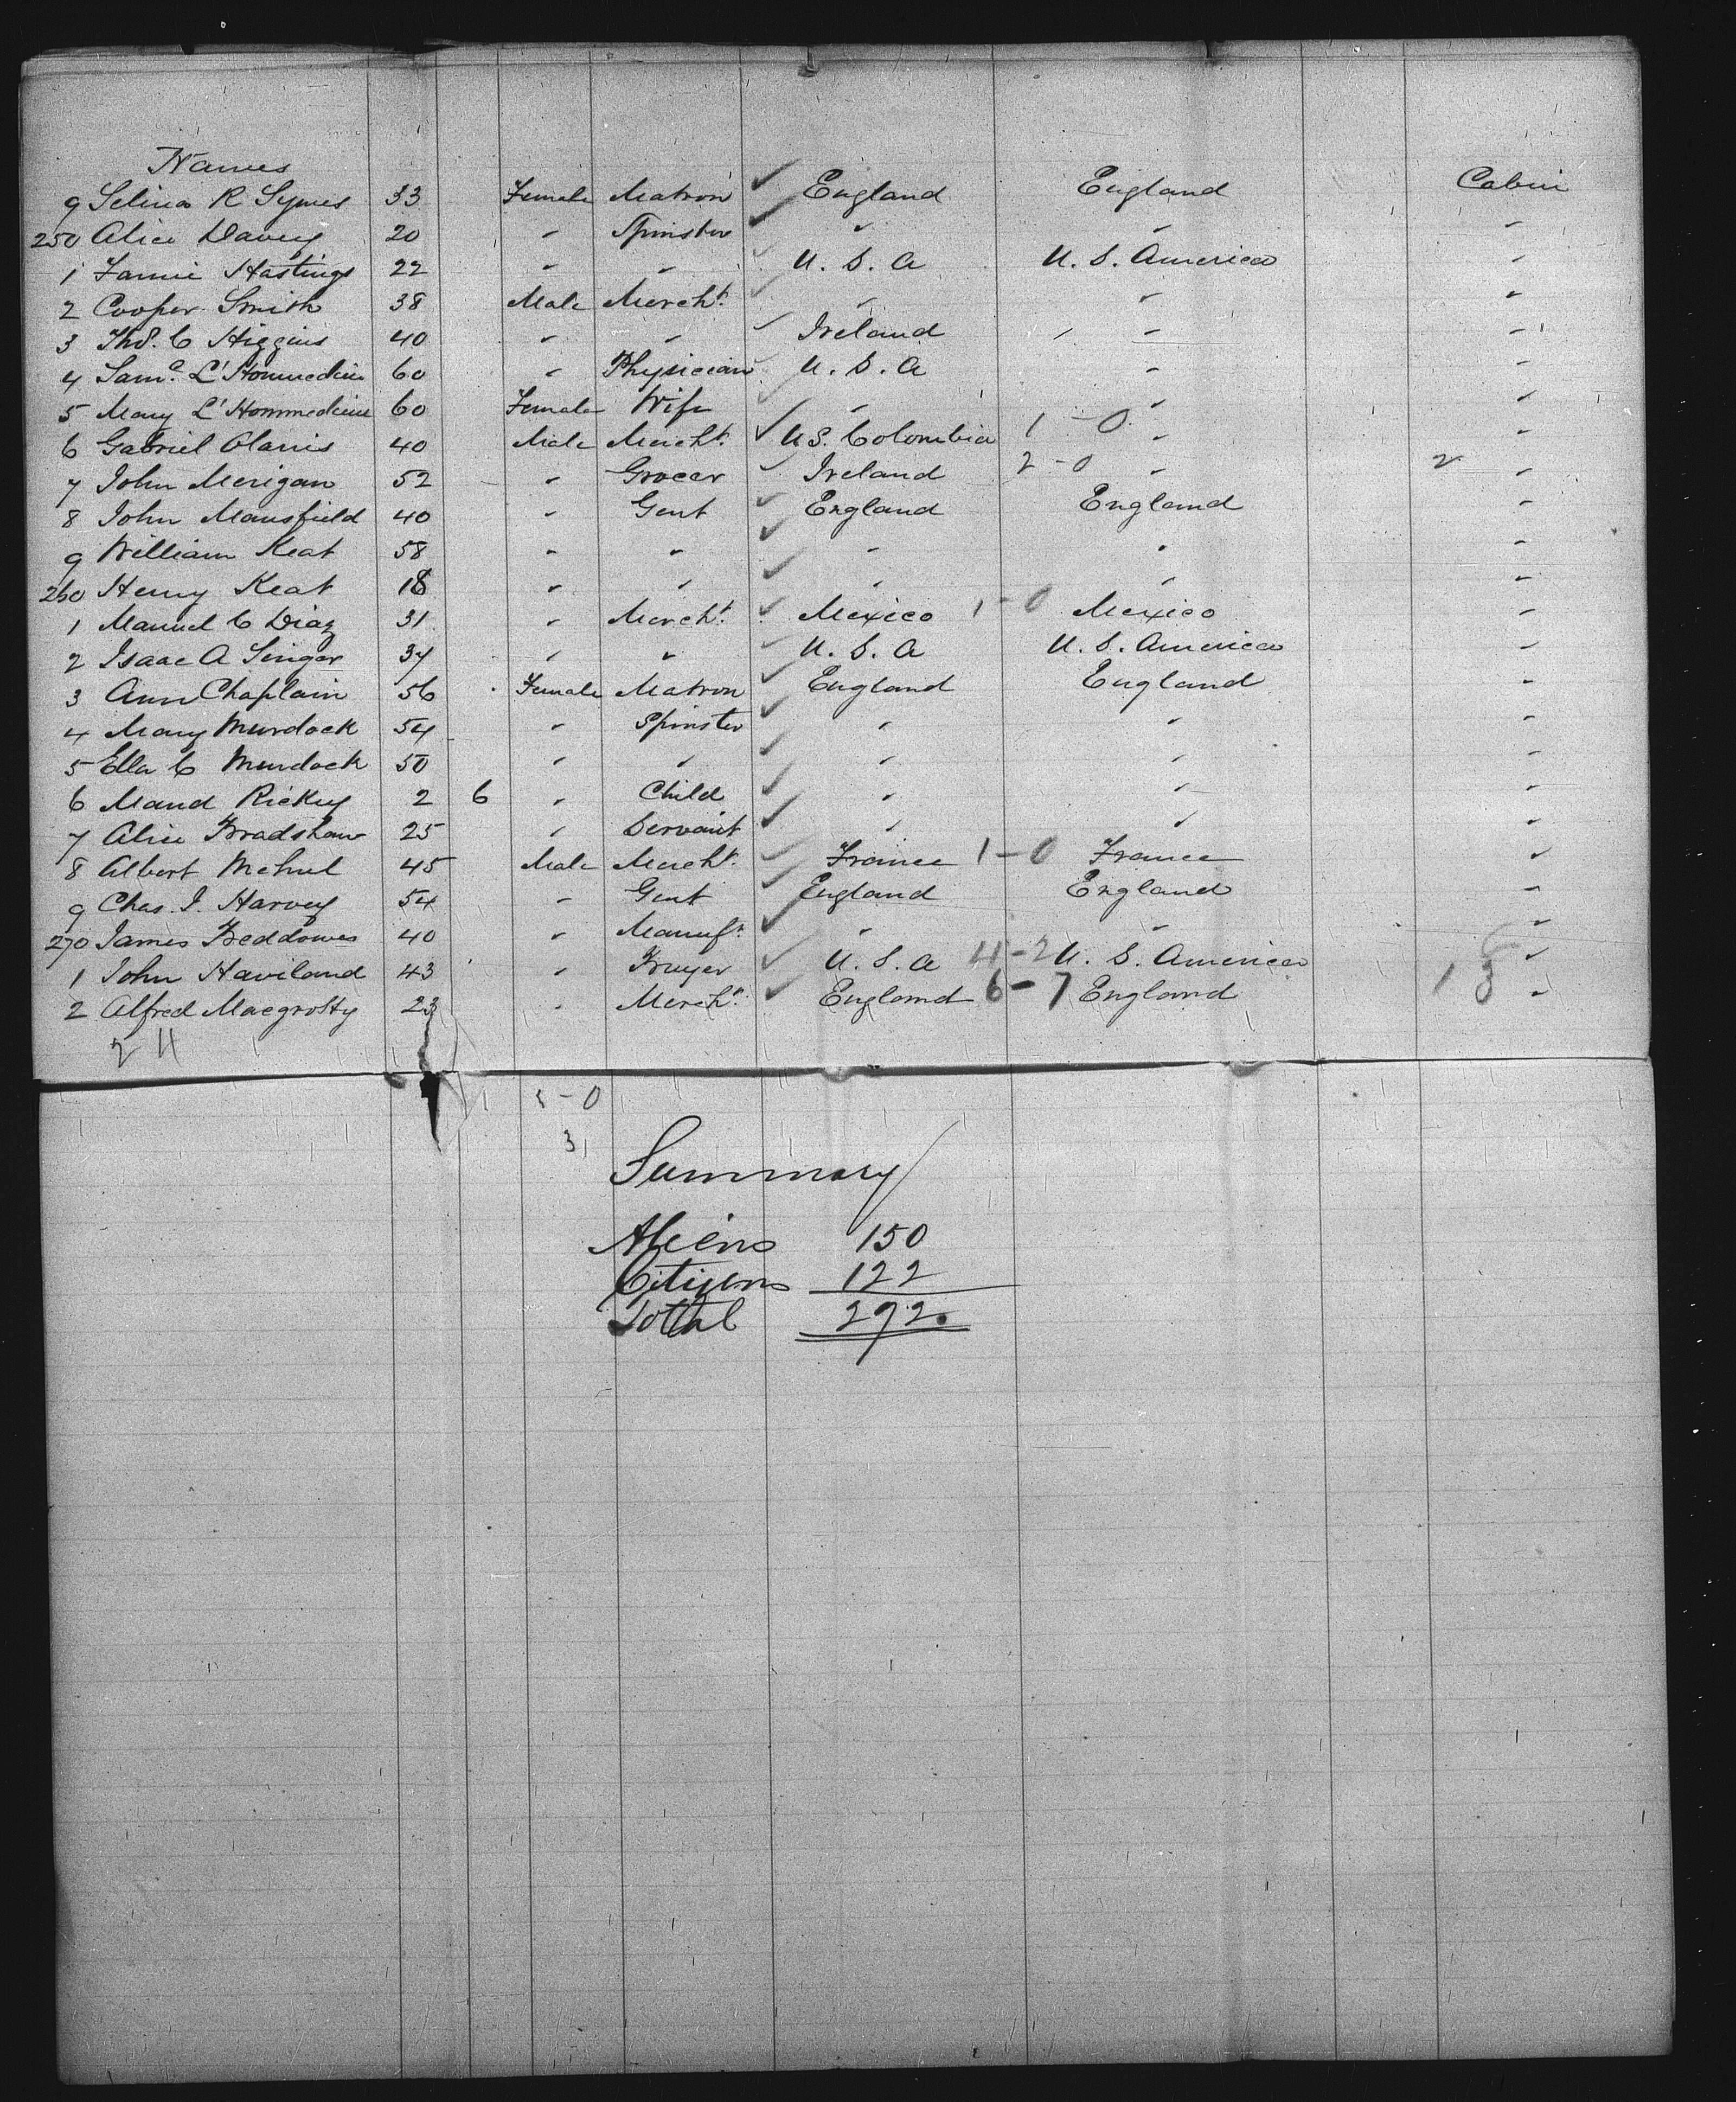 Names
9 Selina R Symes 33 Female Matron ✓ England England Cabin
250 Alice Davey 20 " Spinster ✓ " " "
1 Fannie Hastings 22 " " ✓ U. S. A U. S. America "
2 Cooper Smith 38 Male Mercht. ✓ " " "
3 Thos. C Higgins 40 " " ✓ Ireland " "
4 Saml. L'Hommedieu 60 " Physician ✓ U. S. A " "
5 Mary L'Hommedieu 60 Female Wife " " "
6 Gabriel Olarris 40 Male Mercht. ✓ U.S. Colombia 1 - 0 " "
7 John Merigan 52 " Grocer ✓ Ireland 2 - 0 " 2 "
8 John Mansfield 40 " Gent ✓ England England "
9 William Keat 58 " " ✓ " " "
260 Henry Keat 18 " " ✓ " " "
1 Manuel C Diaz 31 " Mercht. ✓ Mexico 1 - 0 Mexico "
2 Isaac A Singer 34 " " U. S. A U. S. America "
3 Ann Chaplain 56 Female Matron ✓ England England "
4 Mary Murdock 54 " Spinster ✓ " " "
5 Ella C Murdock 50 " " ✓ " " "
6 Maud Rickey 2 6 " Child ✓ " " "
7 Alice Bradshaw 25 " Servant ✓ " " "
8 Albert Mehul 45 Male Mercht. ✓ France 1 - 0 France "
9 Chas. J. Harvey 54 " Gent ✓ England England "
270 James Beddowes 40 " Manuft. ✓ " " "
1 John Haviland 43 " Buyer ✓ U. S. A 4 - 2 U. S. America "
2 Alfred Macgrotty 23 " Mercht. ✓ England 6 - 7 England 13 "
24
5 - 0
3
Summary
Aliens 150
Citizens 122
Total 272.